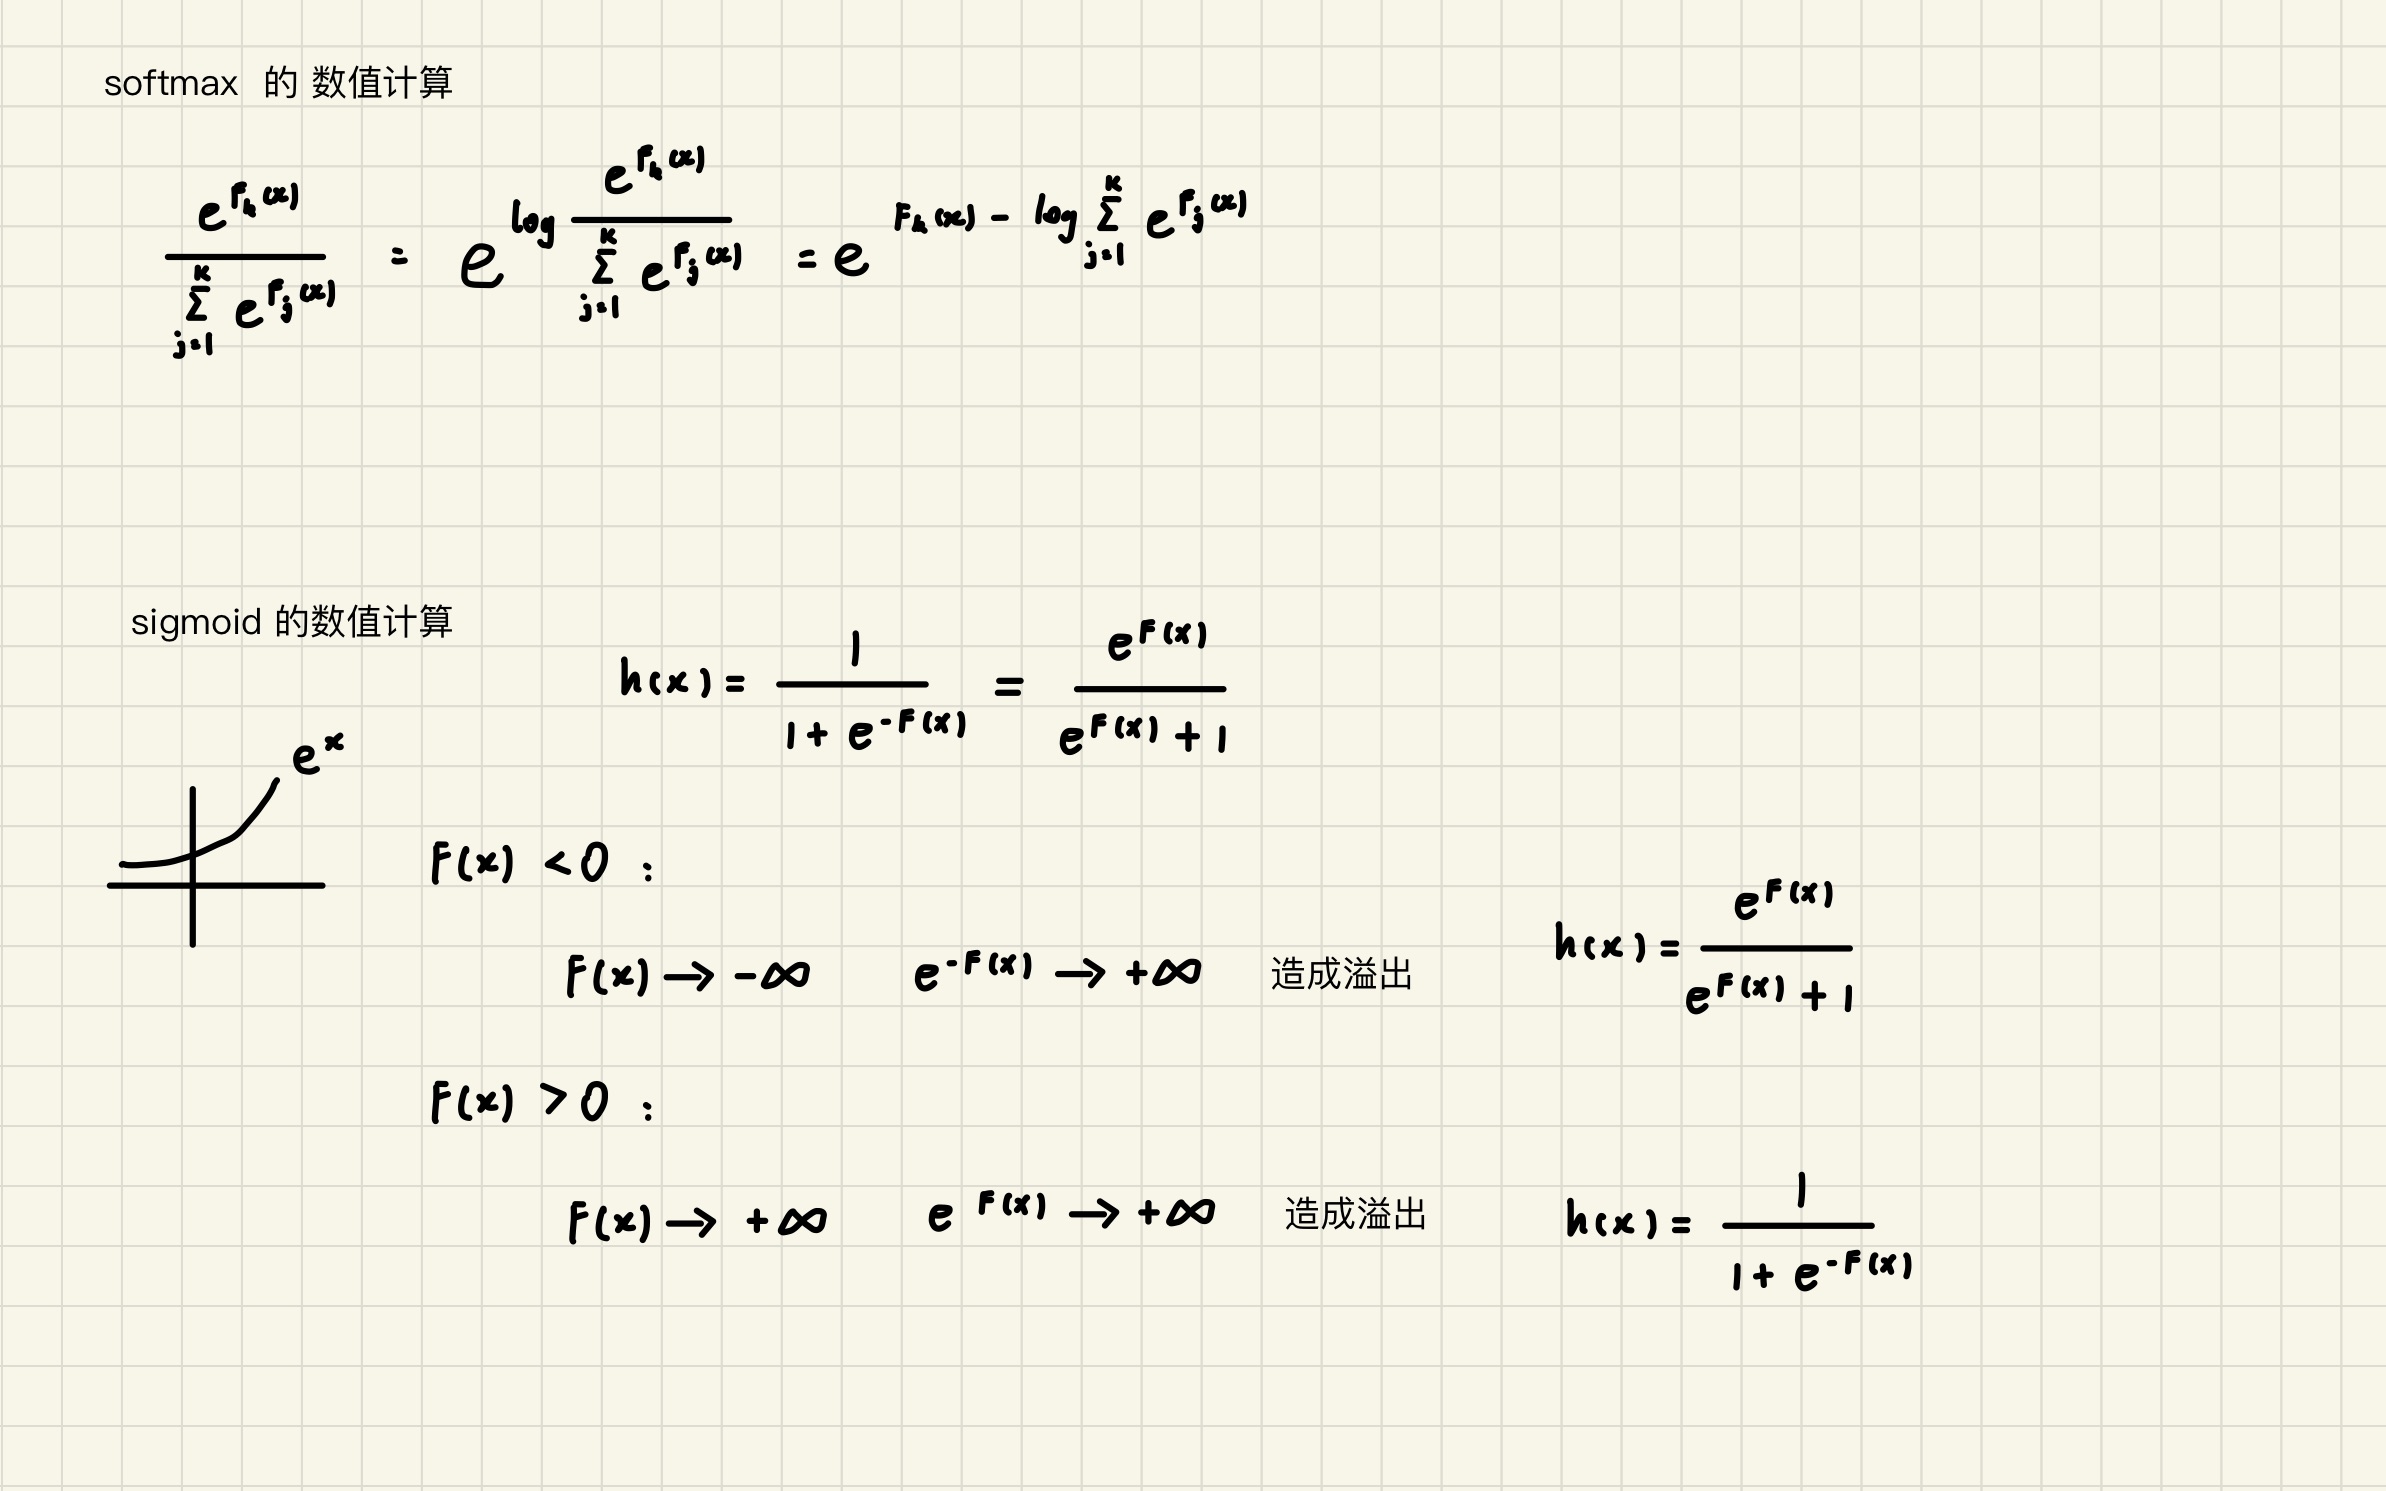 softmax 的 数值计算
\frac{e^{F_k(x)}}{\sum_{j=1}^{K} e^{F_j(x)}} = e^{\log \frac{e^{F_k(x)}}{\sum_{j=1}^{K} e^{F_j(x)}}} = e^{F_k(x) - \log \sum_{j=1}^{K} e^{F_j(x)}}
sigmoid 的数值计算
h(x) = \frac{1}{1 + e^{-F(x)}} = \frac{e^{F(x)}}{e^{F(x)} + 1}
e^x
F(x) < 0 :
F(x) → -∞ e^{-F(x)} → +∞ 造成溢出 h(x) = \frac{e^{F(x)}}{e^{F(x)} + 1}
F(x) > 0 :
F(x) → +∞ e^{F(x)} → +∞ 造成溢出 h(x) = \frac{1}{1 + e^{-F(x)}}